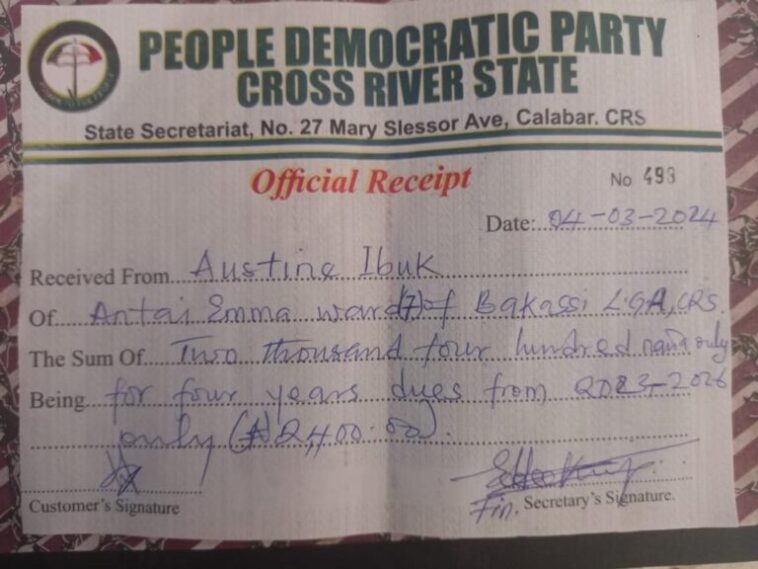 PEOPLE DEMOCRATIC PARTY
CROSS RIVER STATE
State Secretariat, No. 27 Mary Slessor Ave, Calabar. CRS
Official Receipt
No 493
Date: 04-03-2024
Received From Austine Ibuk
Of Antai Emma ward (7) of Bakassi L.G.A, CRS.
The Sum Of Two thousand four hundred naira only
Being for four years dues from 2023-2026
only (₦2400.00).
Customer's Signature
Fin. Secretary's Signature.